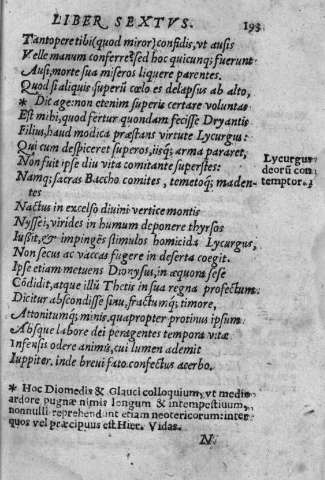 LIBER SEXTVS. 193
Tantopere tibi (quod miror) confidis, vt ausis
Velle manum conferre: sed hoc quicunq; fuerunt
Ausi, morte sua miseros liquere parentes.
Quod si aliquis superū cœlo es delapsus ab alto,
* Dic age: non etenim superis certare voluntas
Est mihi, quod fertur quondam fecisse Dryantis
Filius, haud modica præstans virtute Lycurgus:
Qui cum despiceret superos, iisq; arma pararet,
Non fuit ipse diu vita comitante superstes:
Namq; sacras Baccho comites, temetoq; maden-
tes
Lycurgus
deorū con
temptor.
Nactus in excelso diuini vertice montis
Nyssei, virides in humum deponere thyrsos
Iußit, & impingēs stimulos homicida Lycurgus,
Non secus ac vaccas fugere in deserta coegit.
Ipse etiam metuens Dionysus, in æquora sese
Cōdidit, atque illū Thetis in sua regna profectum
Dicitur abscondisse sinu, fractumq; timore,
Attonitumq; minis. quapropter protinus ipsum
Absque labore dei peragentes tempora vitæ
Infensis odere animis, cui lumen ademit
Iuppiter. inde breui fato confectus acerbo.
* Hoc Diomedis & Glauci colloquium, vt medio
ardore pugnæ nimis longum & intempestiuum,
nonnulli reprehendunt etiam neotericorum: inter
quos vel præcipuus est Hier. Vidas.
N